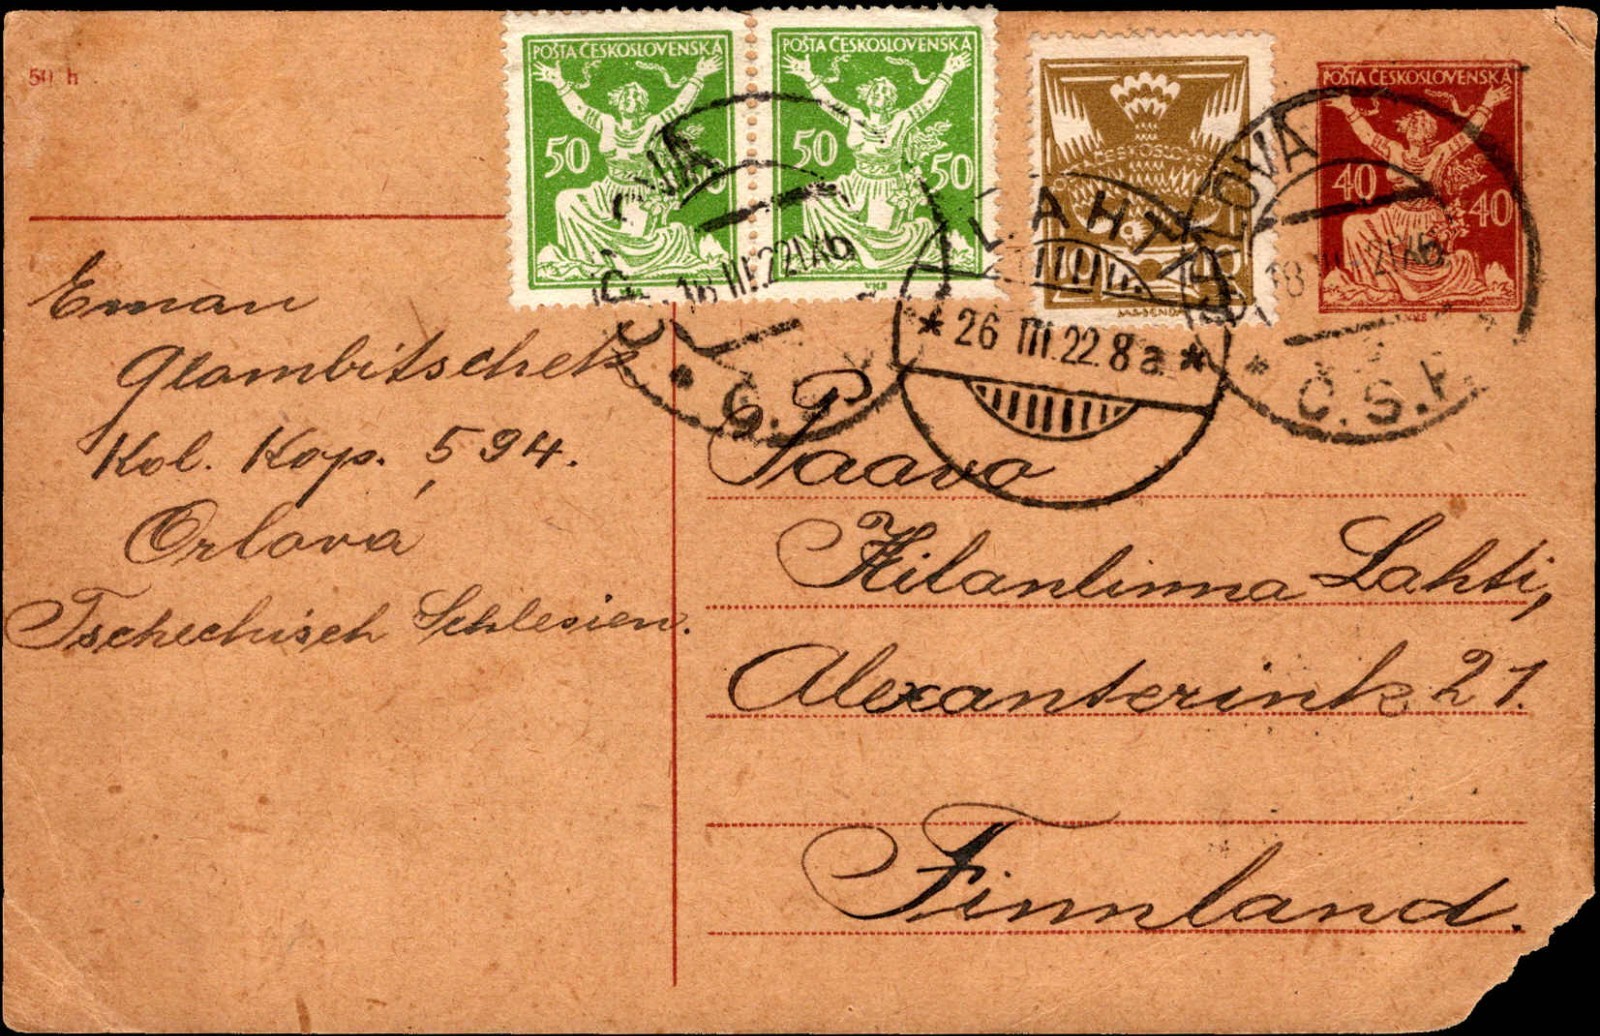 50 h
POŠTA ČESKOSLOVENSKÁ
50
POŠTA ČESKOSLOVENSKÁ
50 50
POŠTA ČESKOSLOVENSKÁ
40 40
LAHTI
* 26 III.22.8a *
Č.S.
Eman
Glambitschek
Kol. Kop. 594.
Orlová
Tschechisch Schlesien.
Paavo
Hilanlinna Lahti,
Alexanterink 21.
Finnland.